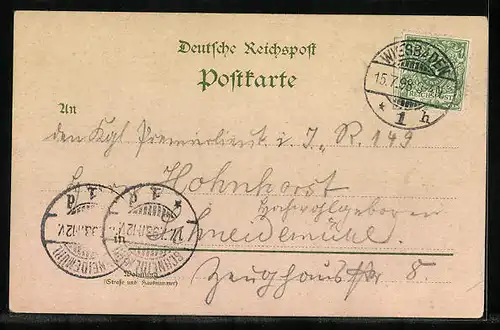 Deutsche Reichspost
Postkarte
WIESBADEN
15.7.98
* 1 h
An
den Kgl. Premierlieut. i. I. R. 149
Hohnhorst
Hochwohlgeboren
in Schneidemühl
Zeughausstr 8.
Wohnung
(Straße und Hausnummer)